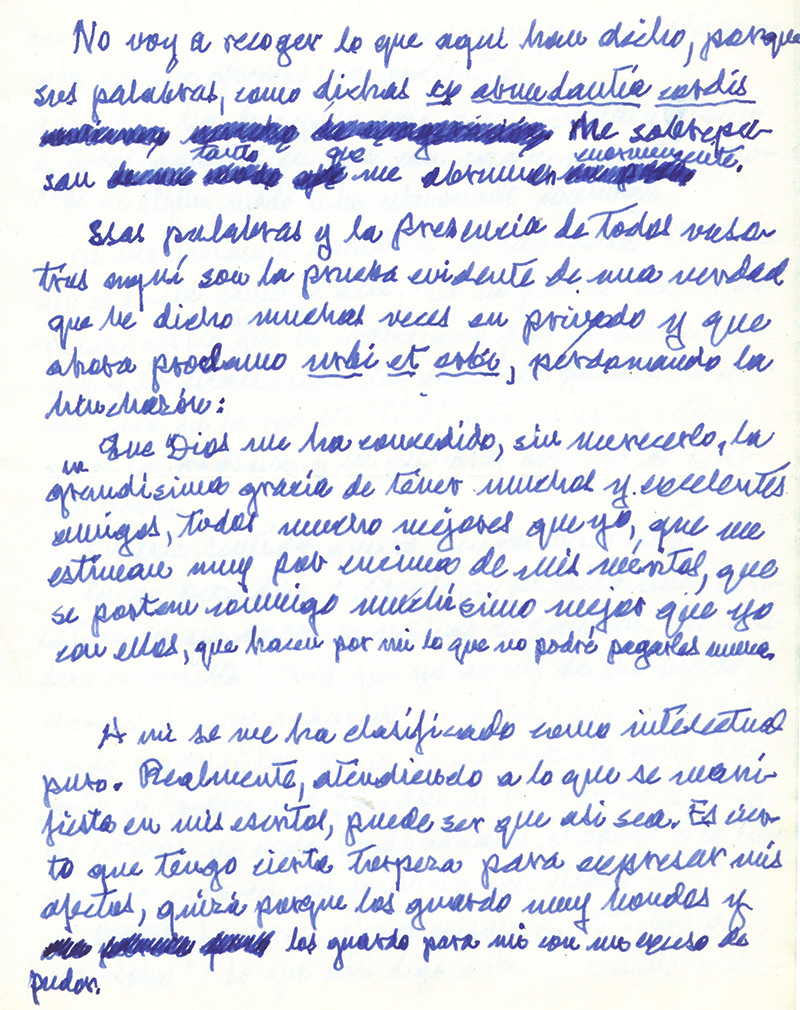 No voy a recoger lo que aquí han dicho, porque
sus palabras, como dichas ex abundantia cordis
Me sobrepa-
san tanto que me abruman enormemente.
Esas palabras y la presencia de todos voso-
tros aquí son la prueba evidente de una verdad
que he dicho muchas veces en privado y que
ahora proclamo urbi et orbi, perdonando la
hinchazón:
Que Dios me ha concedido, sin merecerlo, la
grandísima gracia de tener muchos y excelentes
amigos, todos mucho mejores que yo, que me
estiman muy por encima de mis méritos, que
se portan conmigo muchísimo mejor que yo
con ellos, que hacen por mi lo que no podré pagarles nunca.
A mi se me ha clasificado como intelectual
puro. Realmente, atendiendo a lo que se mani-
fiesta en mis escritos, puede ser que asi sea. Es cier-
to que tengo cierta torpeza para expresar mis
afectos, quizá porque los guardo muy hondos y
los guardo para mi con un exceso de
pudor.